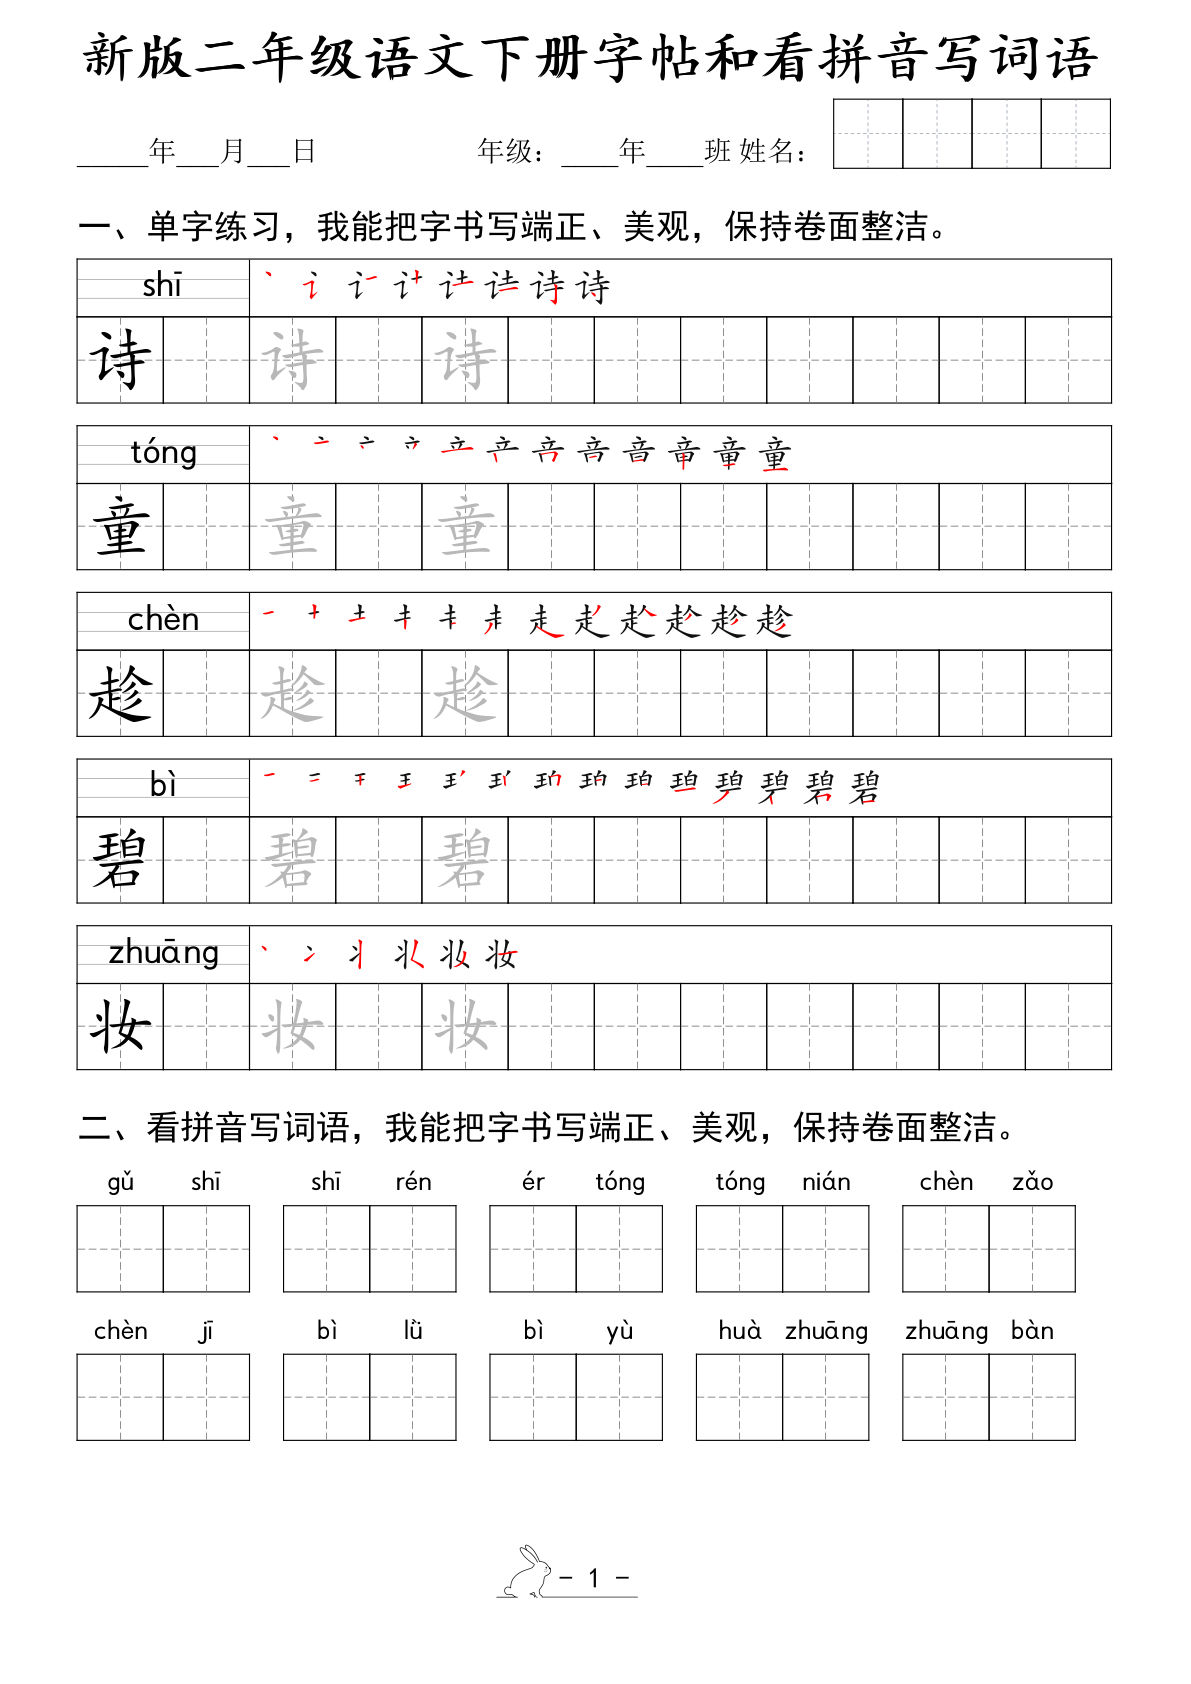 新版二年级语文下册字帖和看拼音写词语
_____年___月___日 年级：____年____班 姓名：
一、单字练习，我能把字书写端正、美观，保持卷面整洁。
shī
诗 诗 诗
tóng
童 童 童
chèn
趁 趁 趁
bì
碧 碧 碧
zhuāng
妆 妆 妆
二、看拼音写词语，我能把字书写端正、美观，保持卷面整洁。
gǔ shī shī rén ér tóng tóng nián chèn zǎo
chèn jī bì lǜ bì yù huà zhuāng zhuāng bàn
- 1 -